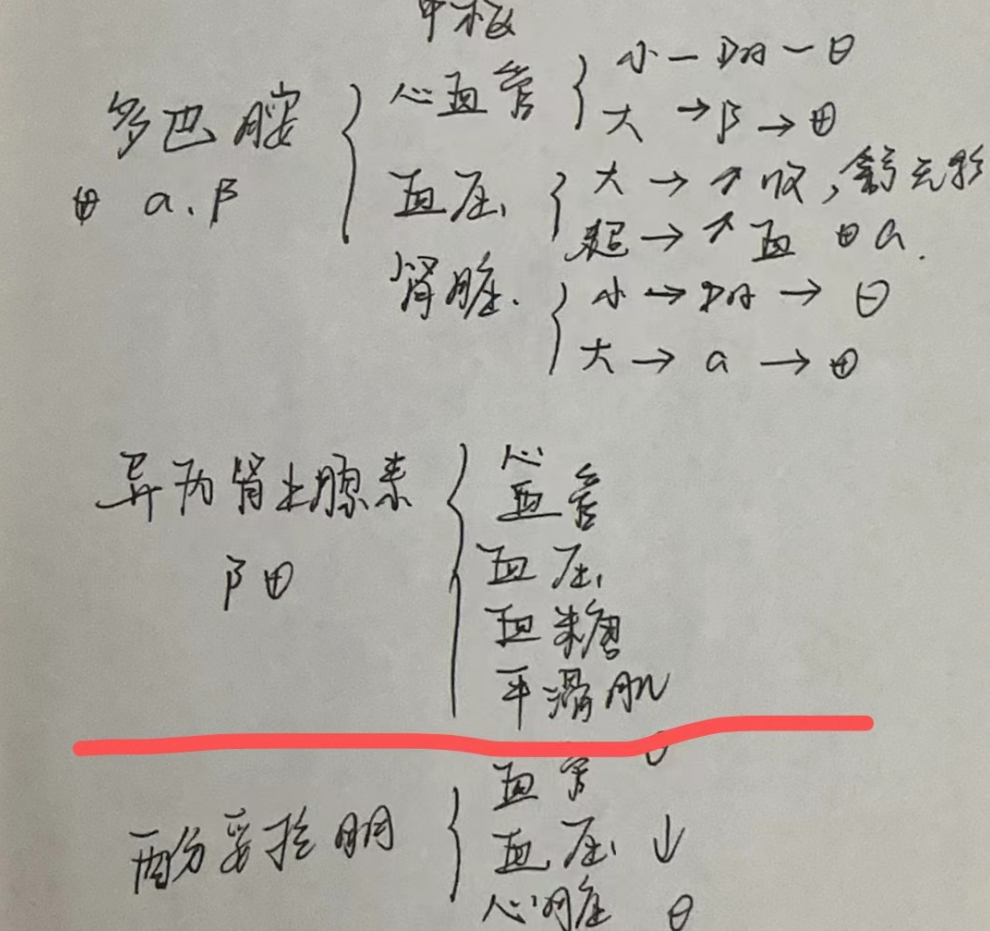 多巴胺
⊕ α、β
心血管
小 — DA — ⊖
大 → β → ⊕
血压
大 → ↗ 收，舒无影
超 → ↗ 血 ⊕ α.
肾脏.
小 → DA → ⊖
大 → α → ⊕
异丙肾上腺素
β ⊕
心
血管
血压
血糖
平滑肌
酚妥拉明
血管
血压 ↓
心脏 ⊖